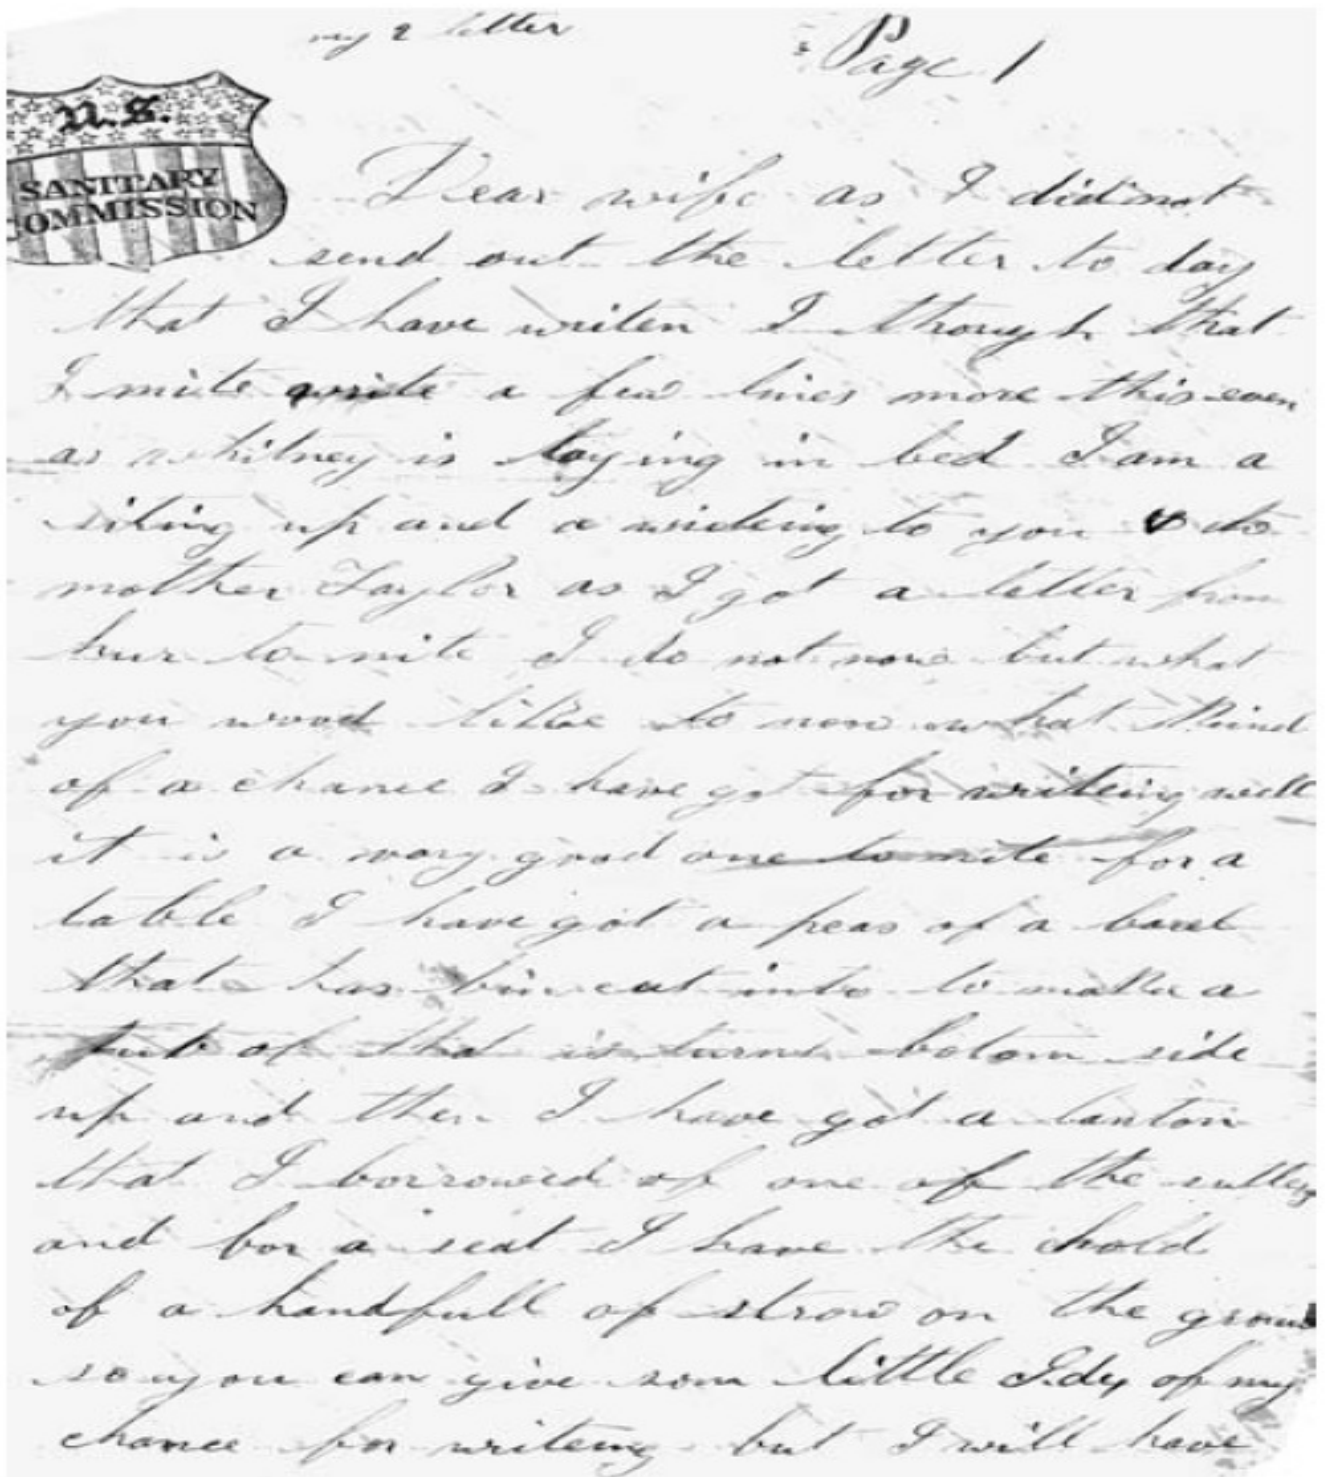 my 2 letter
Page 1
U.S.
SANITARY
COMMISSION
Dear wife as I did not
send out the letter to day
that I have writen I though that
I mite write a few lines more this even
as whitney is laying in bed I am a
siting up and a writeing to you & to
mother Taylor as I got a letter from
hur to nite I do not now but what
you wood like to now what kind
of a chance I have got for writeing well
it is a vary good one to nite for a
table I have got a peas of a barel
that has bin cut into to make a
tub of that is turnd botom side
up and then I have got a lanton
that I borrowed of one of the sutlers
and for a seat I have the hold
of a handfull of straw on the ground
so you can give som little Idy of my
chance for writeing but I will have